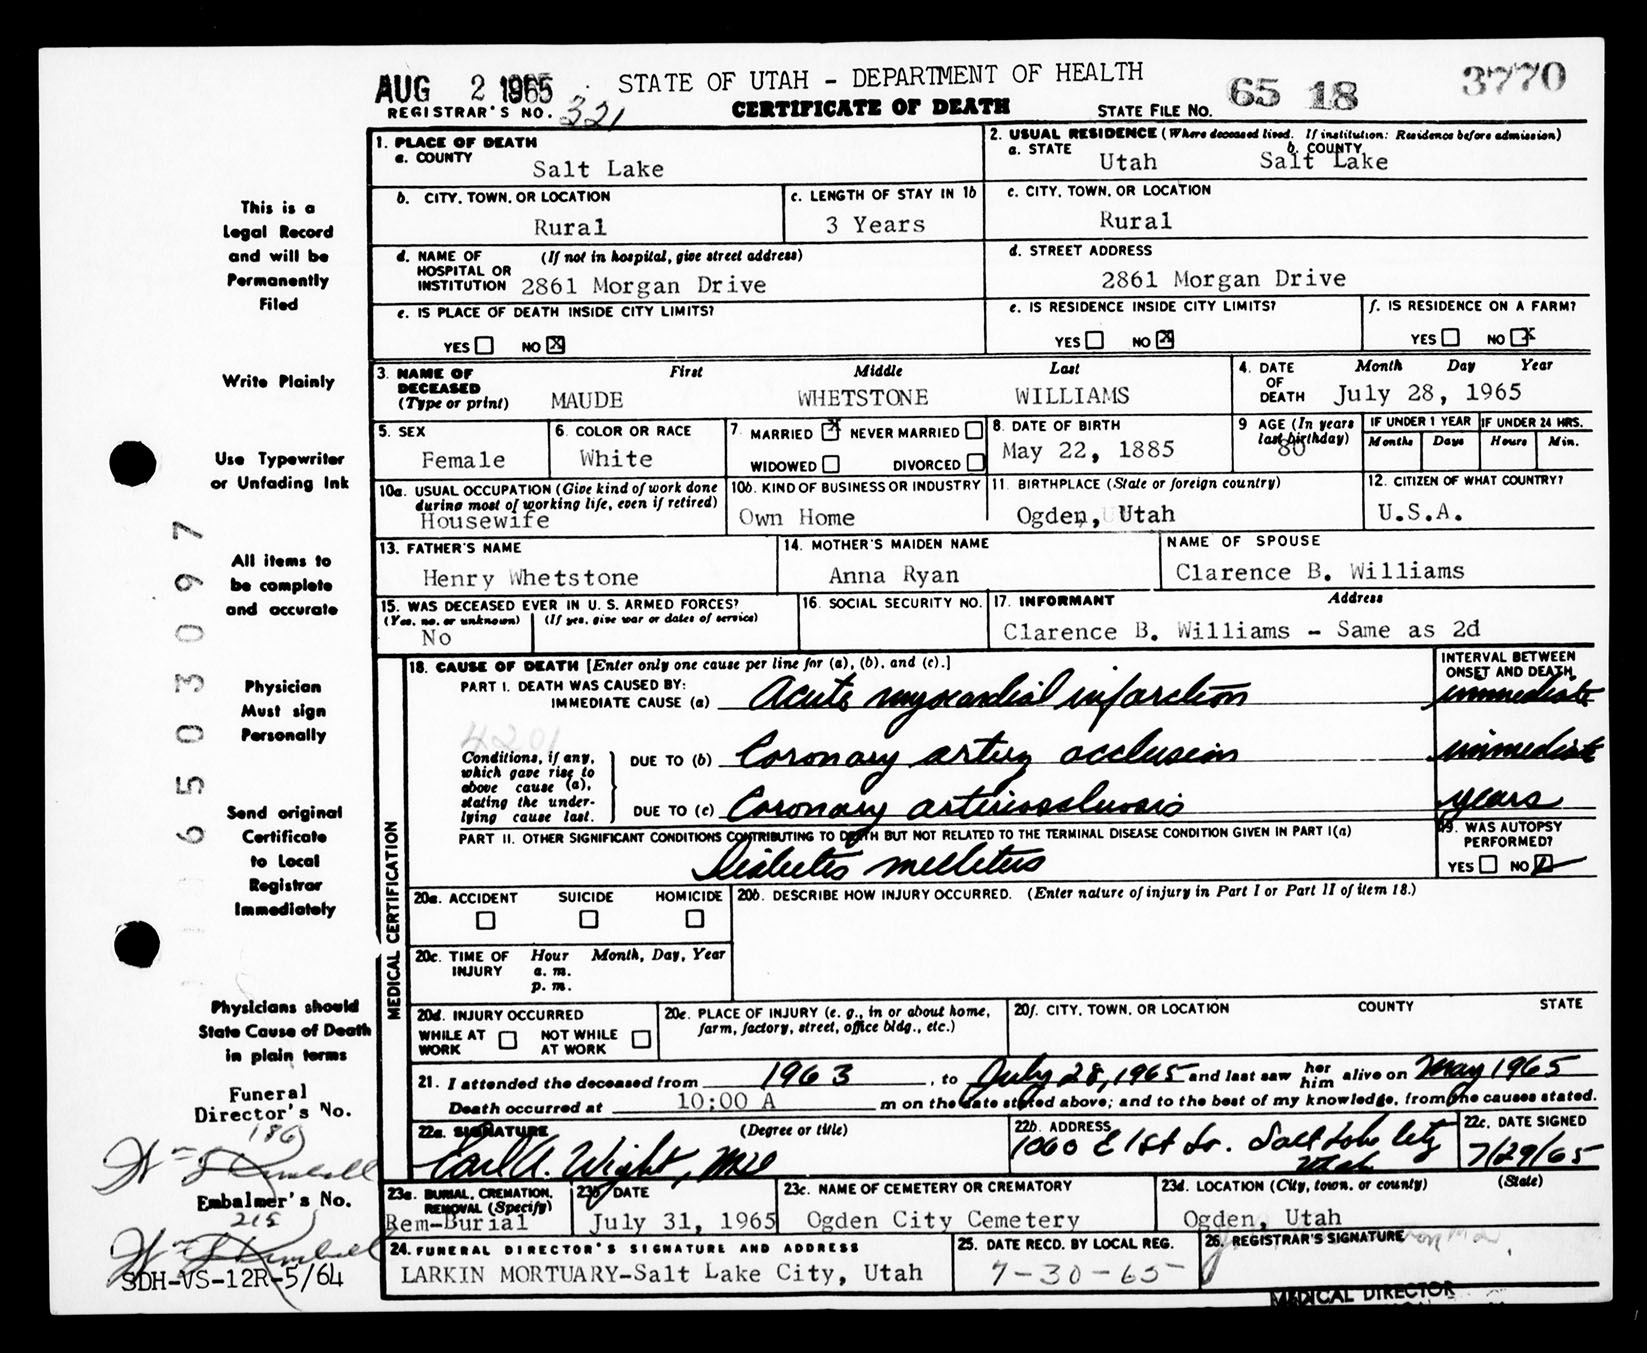 AUG 2 1965
STATE OF UTAH - DEPARTMENT OF HEALTH
3770
REGISTRAR'S NO. 321
CERTIFICATE OF DEATH
STATE FILE NO. 65 18
1. PLACE OF DEATH
a. COUNTY
Salt Lake
2. USUAL RESIDENCE (Where deceased lived. If institution: Residence before admission)
a. STATE Utah b. COUNTY Salt Lake
b. CITY, TOWN, OR LOCATION
Rural
c. LENGTH OF STAY IN 1b
3 Years
c. CITY, TOWN, OR LOCATION
Rural
d. NAME OF HOSPITAL OR INSTITUTION (If not in hospital, give street address)
2861 Morgan Drive
d. STREET ADDRESS
2861 Morgan Drive
e. IS PLACE OF DEATH INSIDE CITY LIMITS?
YES NO X
e. IS RESIDENCE INSIDE CITY LIMITS?
YES NO X
f. IS RESIDENCE ON A FARM?
YES NO X
3. NAME OF DECEASED (Type or print) First Middle Last
MAUDE WHETSTONE WILLIAMS
4. DATE OF DEATH Month Day Year
July 28, 1965
5. SEX
Female
6. COLOR OR RACE
White
7. MARRIED X NEVER MARRIED
WIDOWED DIVORCED
8. DATE OF BIRTH
May 22, 1885
9 AGE (In years last birthday)
80
IF UNDER 1 YEAR IF UNDER 24 HRS.
Months Days Hours Min.
10a. USUAL OCCUPATION (Give kind of work done during most of working life, even if retired)
Housewife
10b. KIND OF BUSINESS OR INDUSTRY
Own Home
11. BIRTHPLACE (State or foreign country)
Ogden, Utah
12. CITIZEN OF WHAT COUNTRY?
U.S.A.
13. FATHER'S NAME
Henry Whetstone
14. MOTHER'S MAIDEN NAME
Anna Ryan
NAME OF SPOUSE
Clarence B. Williams
15. WAS DECEASED EVER IN U. S. ARMED FORCES?
(Yes, no, or unknown) (If yes, give war or dates of service)
No
16. SOCIAL SECURITY NO.
17. INFORMANT Address
Clarence B. Williams - Same as 2d
MEDICAL CERTIFICATION
18. CAUSE OF DEATH [Enter only one cause per line for (a), (b), and (c).]
INTERVAL BETWEEN ONSET AND DEATH
PART I. DEATH WAS CAUSED BY:
IMMEDIATE CAUSE (a) Acute myocardial infarction immediate
4201
Conditions, if any, which gave rise to above cause (a), stating the underlying cause last.
DUE TO (b) Coronary artery occlusion immediate
DUE TO (c) Coronary arteriosclerosis years
PART II. OTHER SIGNIFICANT CONDITIONS CONTRIBUTING TO DEATH BUT NOT RELATED TO THE TERMINAL DISEASE CONDITION GIVEN IN PART I(a)
Diabetes mellitus
19. WAS AUTOPSY PERFORMED?
YES NO
20a. ACCIDENT SUICIDE HOMICIDE
20b. DESCRIBE HOW INJURY OCCURRED. (Enter nature of injury in Part I or Part II of item 18.)
20c. TIME OF INJURY Hour Month, Day, Year
a. m.
p. m.
20d. INJURY OCCURRED
WHILE AT WORK NOT WHILE AT WORK
20e. PLACE OF INJURY (e. g., in or about home, farm, factory, street, office bldg., etc.)
20f. CITY, TOWN, OR LOCATION COUNTY STATE
21. I attended the deceased from 1963, to July 28, 1965 and last saw her him alive on May 1965
Death occurred at 10:00 A m on the date stated above; and to the best of my knowledge, from the causes stated.
22a. SIGNATURE (Degree or title)
Carl A. Wight, MD
22b. ADDRESS
1060 E 1st So. Salt Lake City Utah
22c. DATE SIGNED
7/29/65
23a. BURIAL, CREMATION, REMOVAL (Specify)
Rem-Burial
23b. DATE
July 31, 1965
23c. NAME OF CEMETERY OR CREMATORY
Ogden City Cemetery
23d. LOCATION (City, town, or county) (State)
Ogden, Utah
24. FUNERAL DIRECTOR'S SIGNATURE AND ADDRESS
LARKIN MORTUARY-Salt Lake City, Utah
25. DATE RECD. BY LOCAL REG.
7-30-65
26. REGISTRAR'S SIGNATURE
MEDICAL DIRECTOR
This is a
Legal Record
and will be
Permanently
Filed
Write Plainly
Use Typewriter
or Unfading Ink
All items to
be complete
and accurate
Physician
Must sign
Personally
Send original
Certificate
to Local
Registrar
Immediately
Physicians should
State Cause of Death
in plain terms
Funeral
Director's No.
186
Embalmer's No.
215
SDH-VS-12R-5/64
6503097